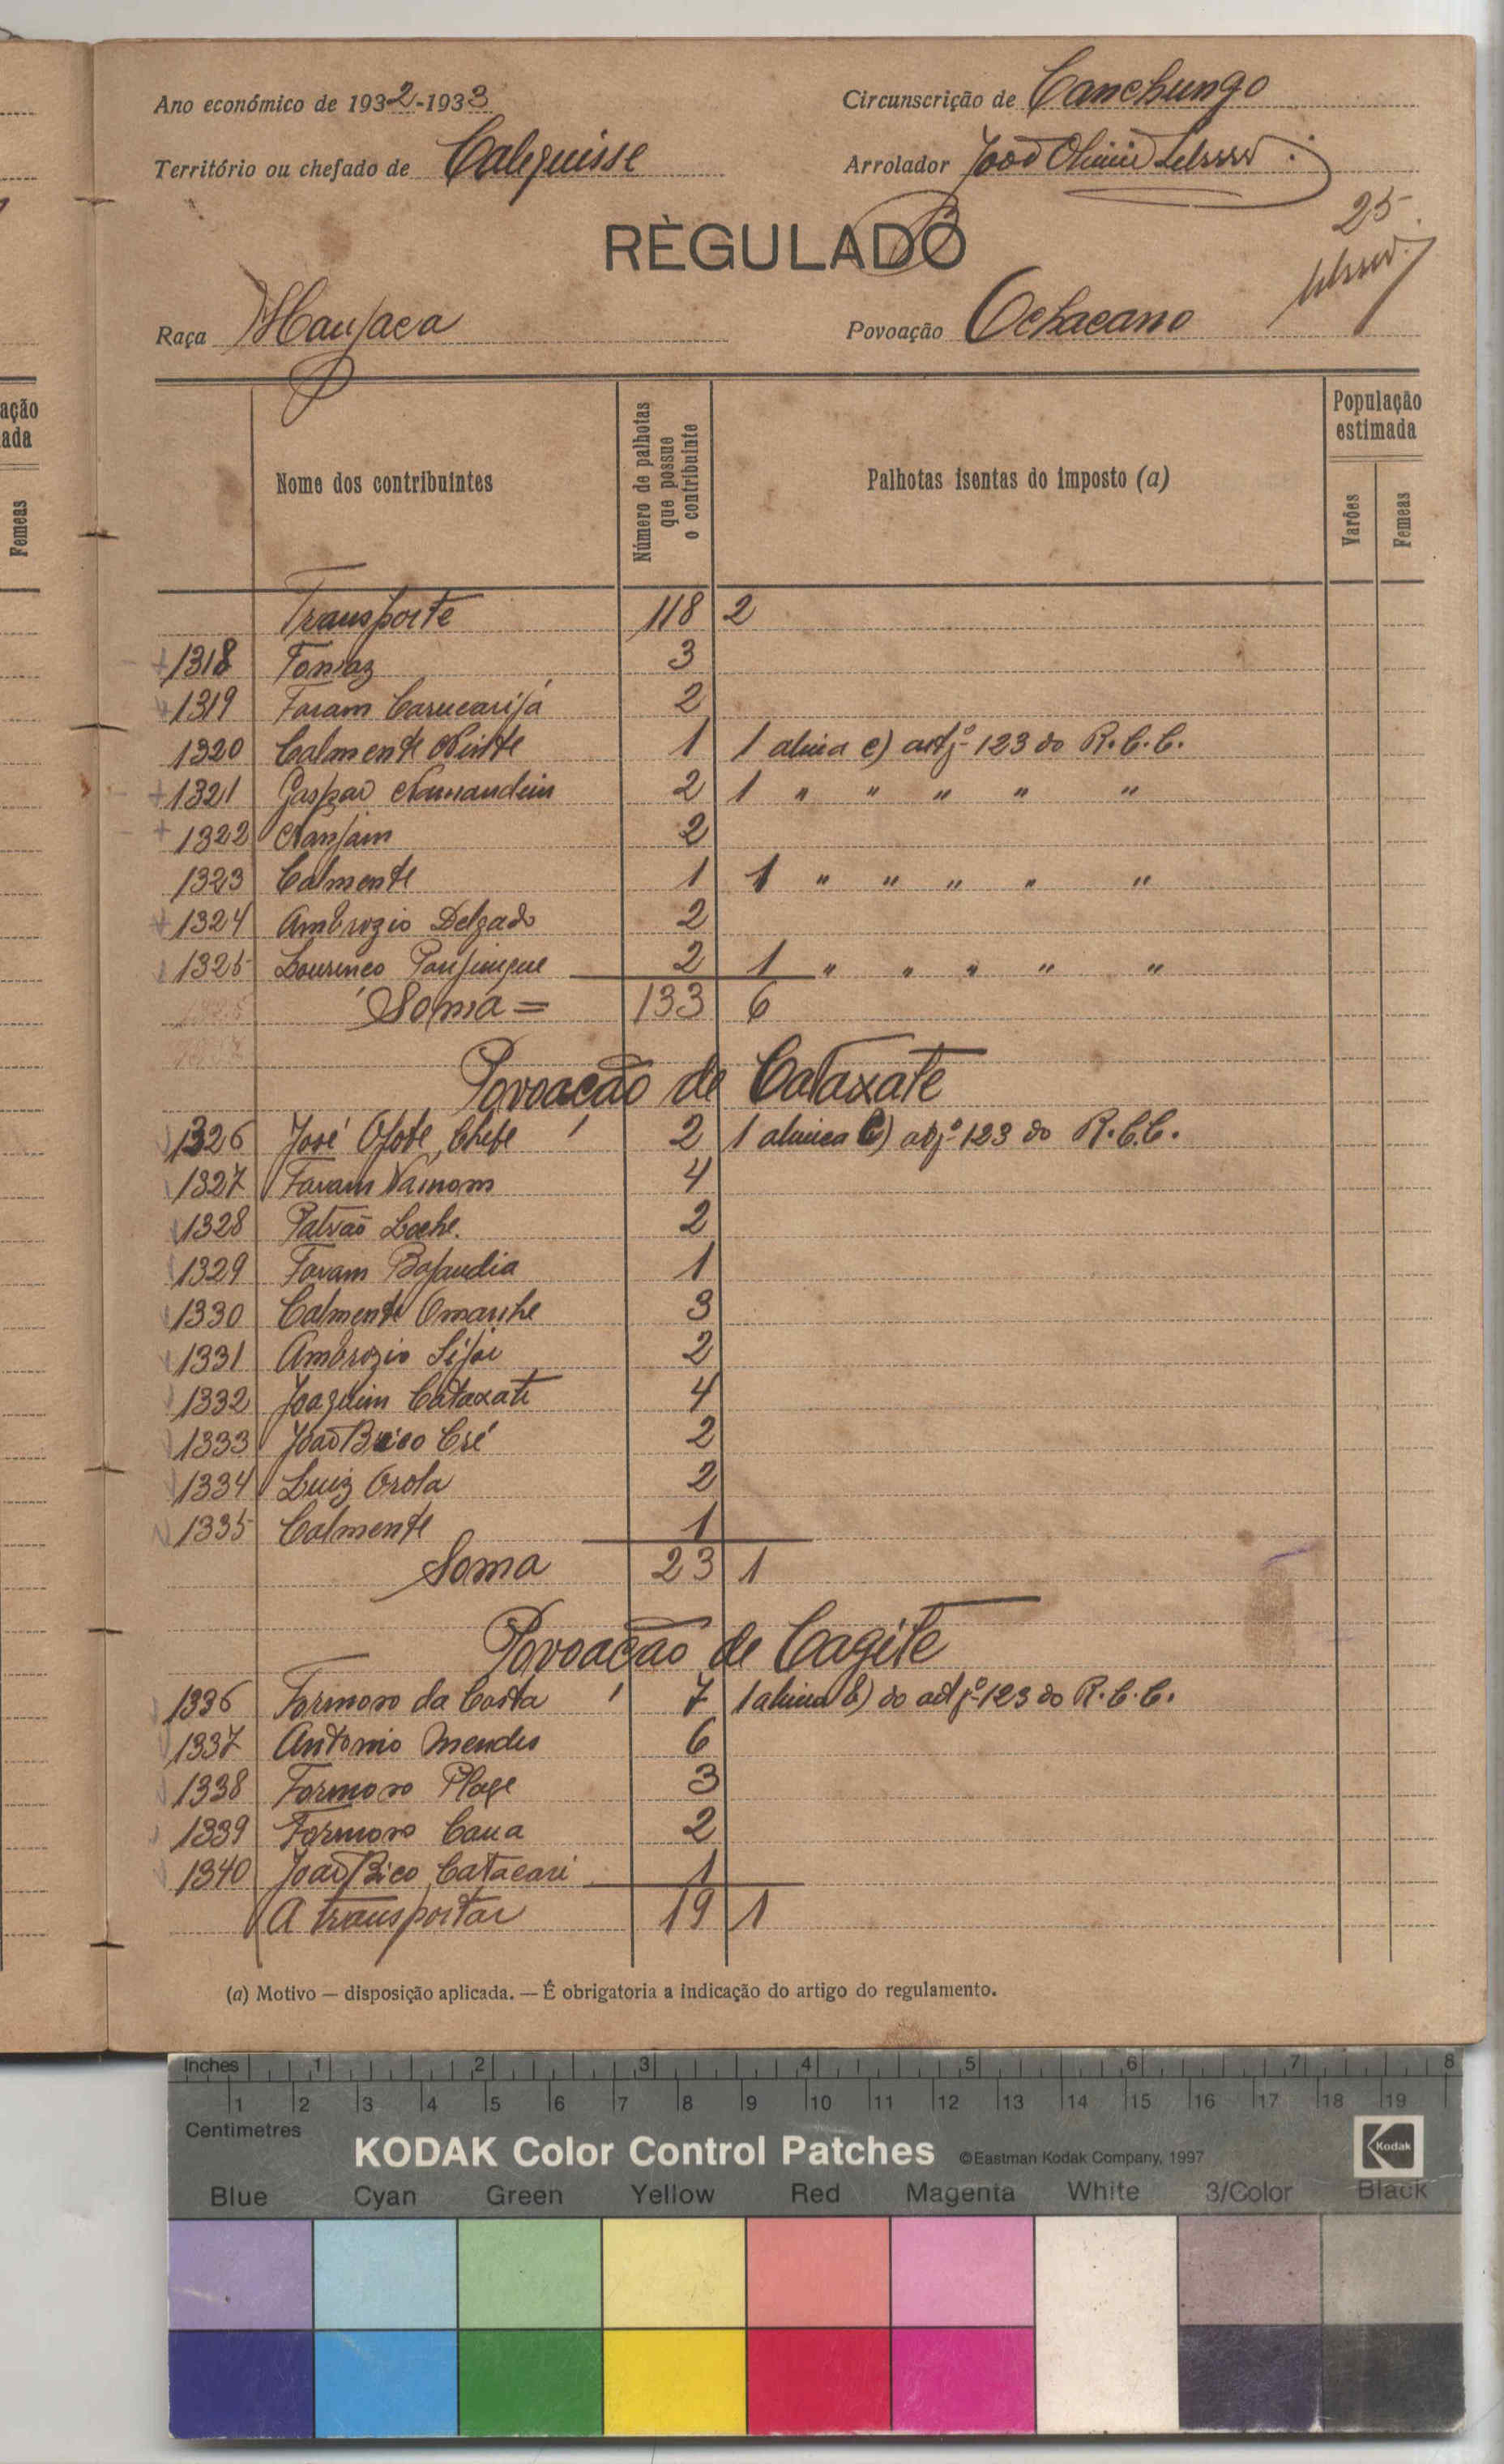 Ano económico de 1932-1933
Circunscrição de Canchungo
Território ou chefado de Calequisse
Arrolador João
25
RÈGULADO
Raça Manjaca
Povoação Ochacano
Nome dos contribuintes
Número de palhotas que possue o contribuinte
Palhotas isentas do imposto (a)
População estimada
Varões
Femeas
ação
ada
Femeas
Transporte 118 2
1318 Tomaz 3
1319 Faram Carucarijá 2
1320 Calmente 1 1 alinia c) artº 123 do R.C.C.
1321 Gaspar 2 1 " " " " "
1322 Nanjain 2
1323 Calmente 1 1 " " " " "
1324 Ambrozio Delgado 2
1325 Lourenco 2 1 " " " " "
Soma = 133 6
Povoação de Cataxate
1326 José Ofote, Chefe 2 1 alinea b) artº 123 do R.C.C.
1327 Faram Namom 4
1328 Patrão Loche. 2
1329 Faram Bajandia 1
1330 Calmente Omanhe 3
1331 Ambrozio Sijoi 2
1332 Joaquim Cataxate 4
1333 João Bico Cré 2
1334 Luiz Orola 2
1335 Calmente 1
Soma 23 1
Povoação de Cagite
1336 Formoso da Costa 7 1 alinia b) do artº 123 do R.C.C.
1337 Antonio Mendes 6
1338 Formoso Plage 3
1339 Formoso Caua 2
1340 João Bico Catacari 1
A transportar 19 1
(a) Motivo — disposição aplicada. — É obrigatoria a indicação do artigo do regulamento.
Inches 1 2 3 4 5 6 7 8
1 2 3 4 5 6 7 8 9 10 11 12 13 14 15 16 17 18 19
Centimetres
KODAK Color Control Patches ©Eastman Kodak Company, 1997
Kodak
Blue Cyan Green Yellow Red Magenta White 3/Color Black